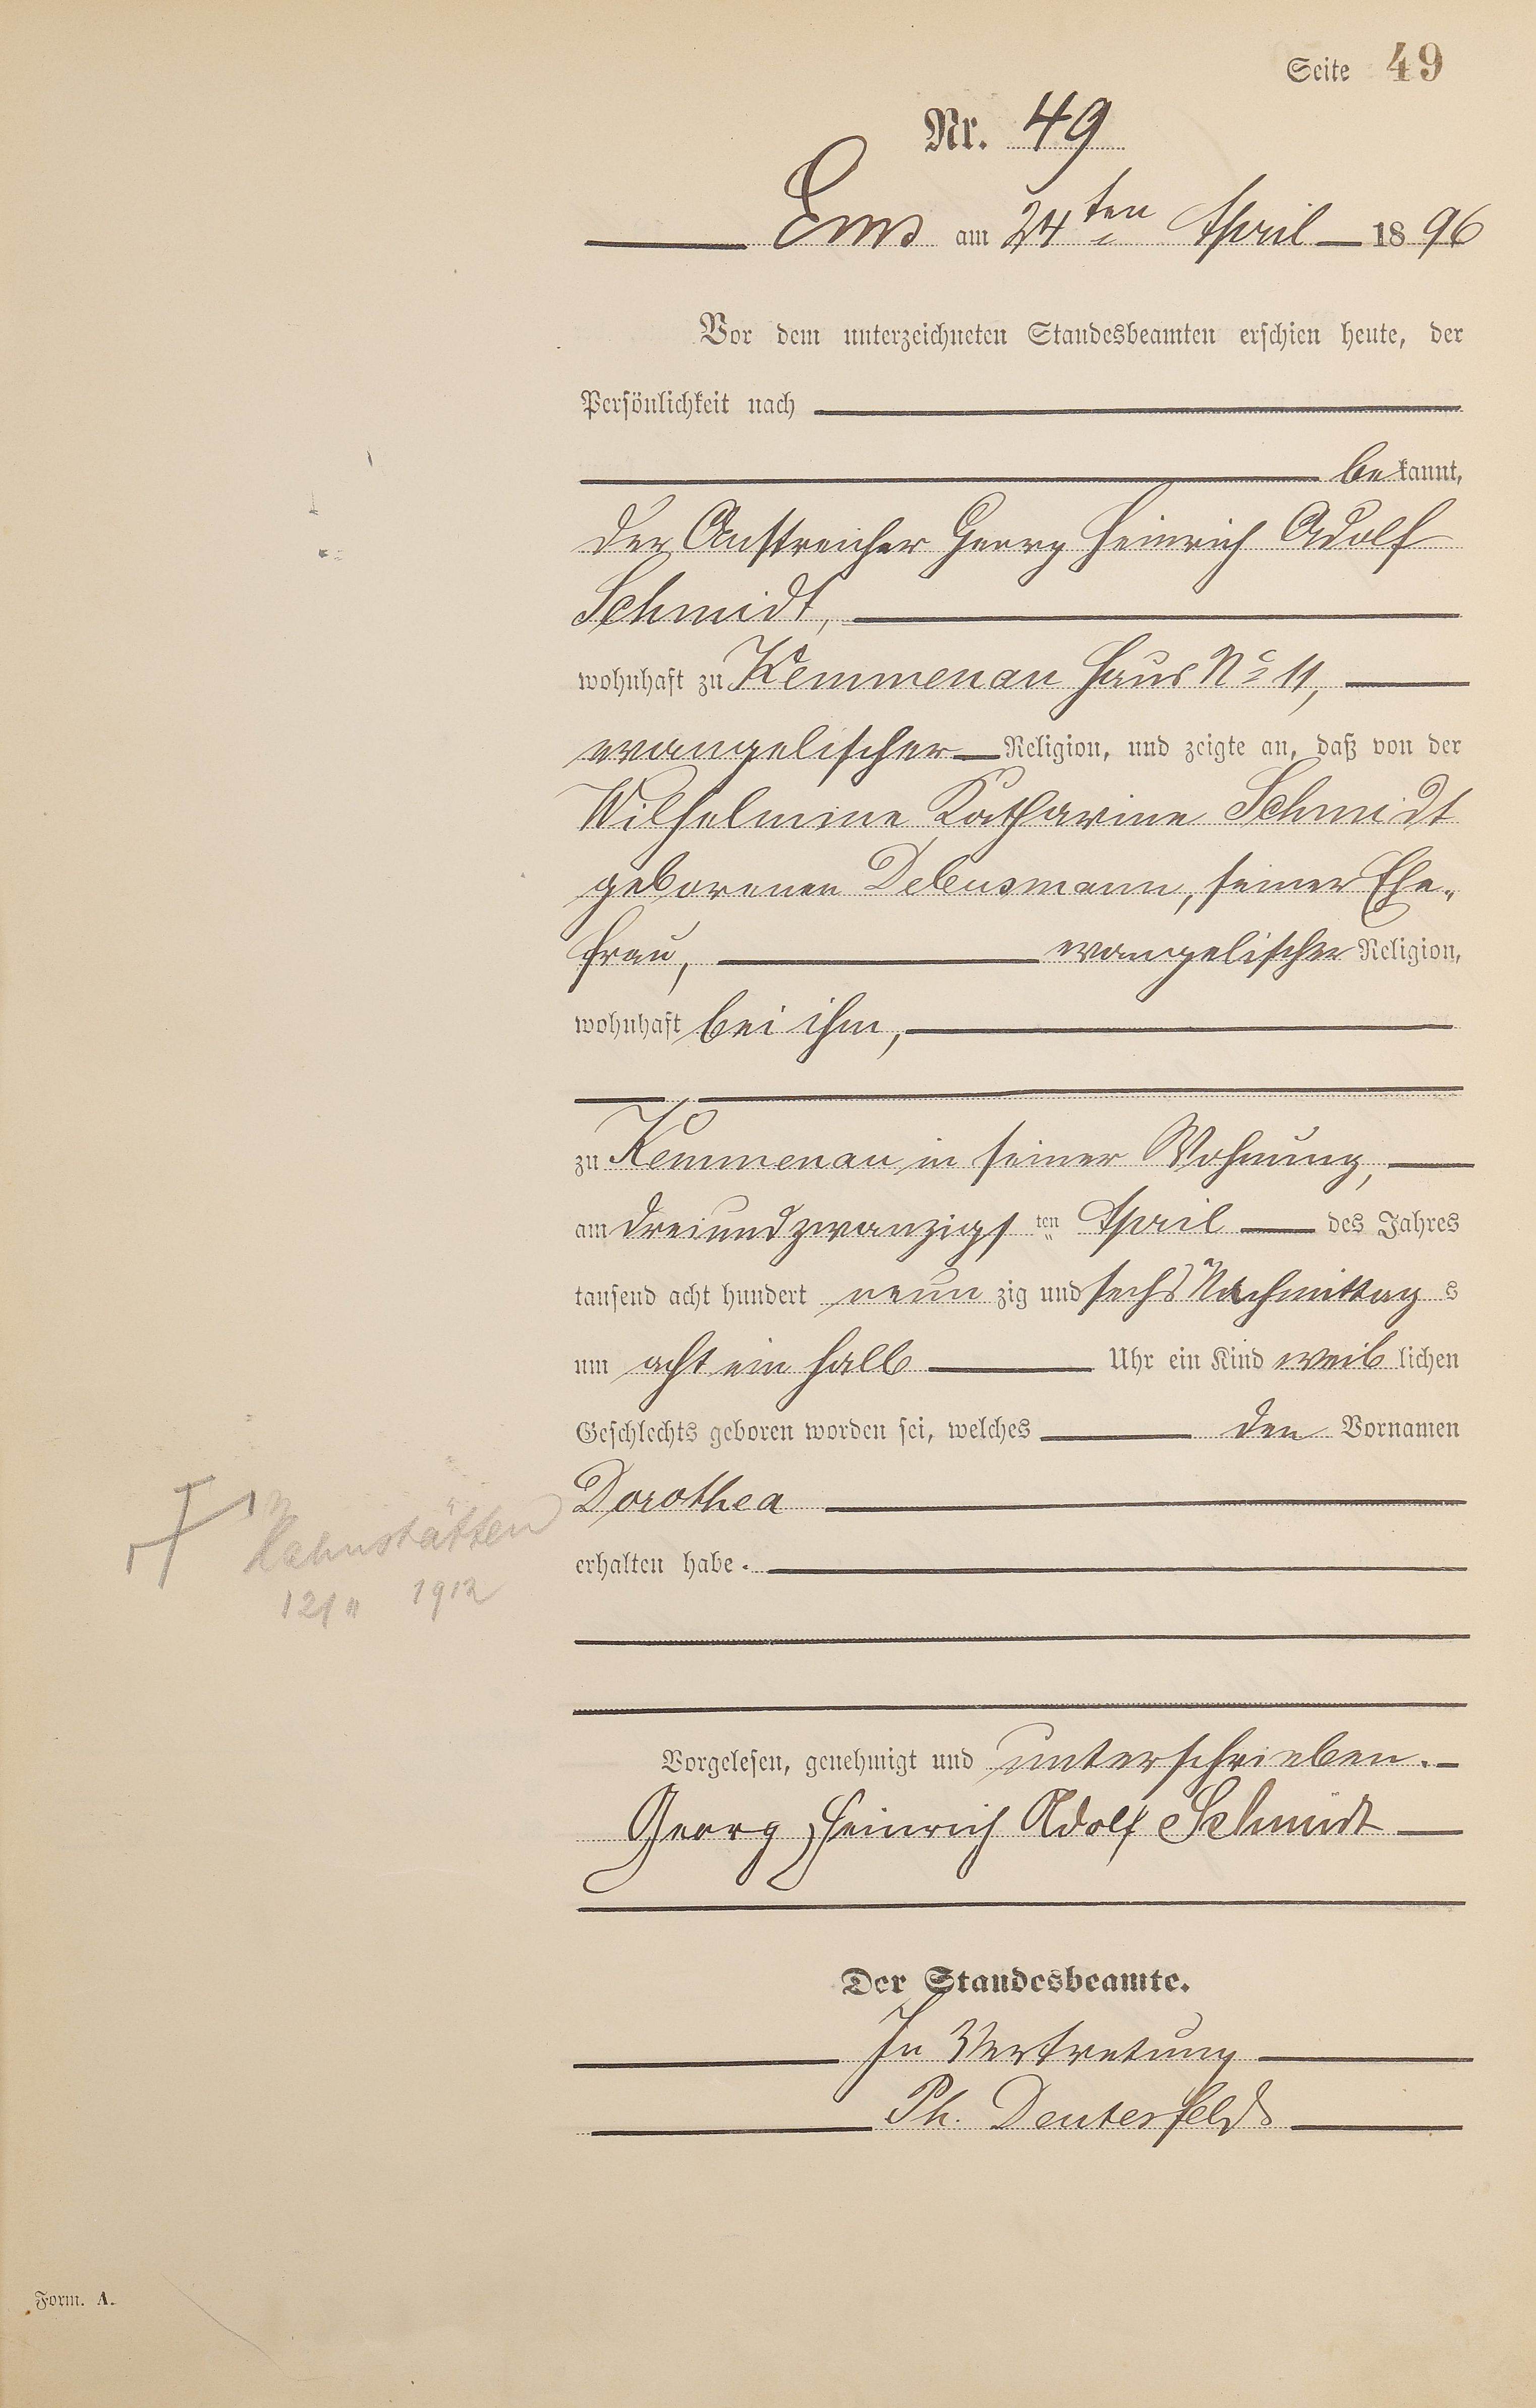 Seite 49
Nr. 49
Ems am 24ten April 1896
Vor dem unterzeichneten Standesbeamten erschien heute, der
Persönlichkeit nach
bekannt,
der Anstreicher Georg Heinrich Adolf
Schmidt,
wohnhaft zu Kemmenau Haus No 11,
evangelischer Religion, und zeigte an, daß von der
Wilhelmine Katharine Schmidt
geborenen Debusmann, seiner Ehe„
frau, evangelischer Religion,
wohnhaft bei ihm,
zu Kemmenau in seiner Wohnung,
am dreiundzwanzigsten April des Jahres
tausend acht hundert neunzig und sechs Nachmittags
um acht ein halb Uhr ein Kind weiblichen
Geschlechts geboren worden sei, welches den Vornamen
Dorothea
Hahnstätten
erhalten habe.
1912
Vorgelesen, genehmigt und unterschrieben.
Georg Heinrich Adolf Schmidt
Der Standesbeamte.
In Vertretung
Ph. Deutesfeld
Form. A.